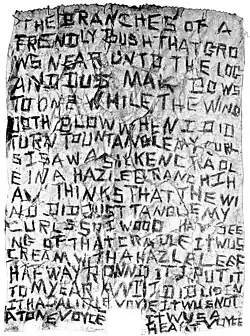 THE BRANCHES OF A
FRENDLY BUSH THAT GRO
WS NEAR UNTO THE LOG
AND IUS MAK DOWS
TO ONE WHILE THE WIND
DOTH BLOW WHEN I DID
TURN TO UNTANGLE MY CURL
S I SAW A SILKEN CRADL
E IN A HAZLE BRANCH IH
AV THINKS THAT THE WI
ND DID JUST TANGLE MY
CURLS SO I WOOD HAV SEE
NG OF THAT CRADLE IT WUS
CREAM WITH A HAZL LEEF
HAF WAY ROWND IT I PUT IT
TO MY EAR AND I DID LISSEN
IT HAD A LITTLE VOYCE IT WUS NOT
A TONE VOYCE IT WUS A
HEART VOYCE